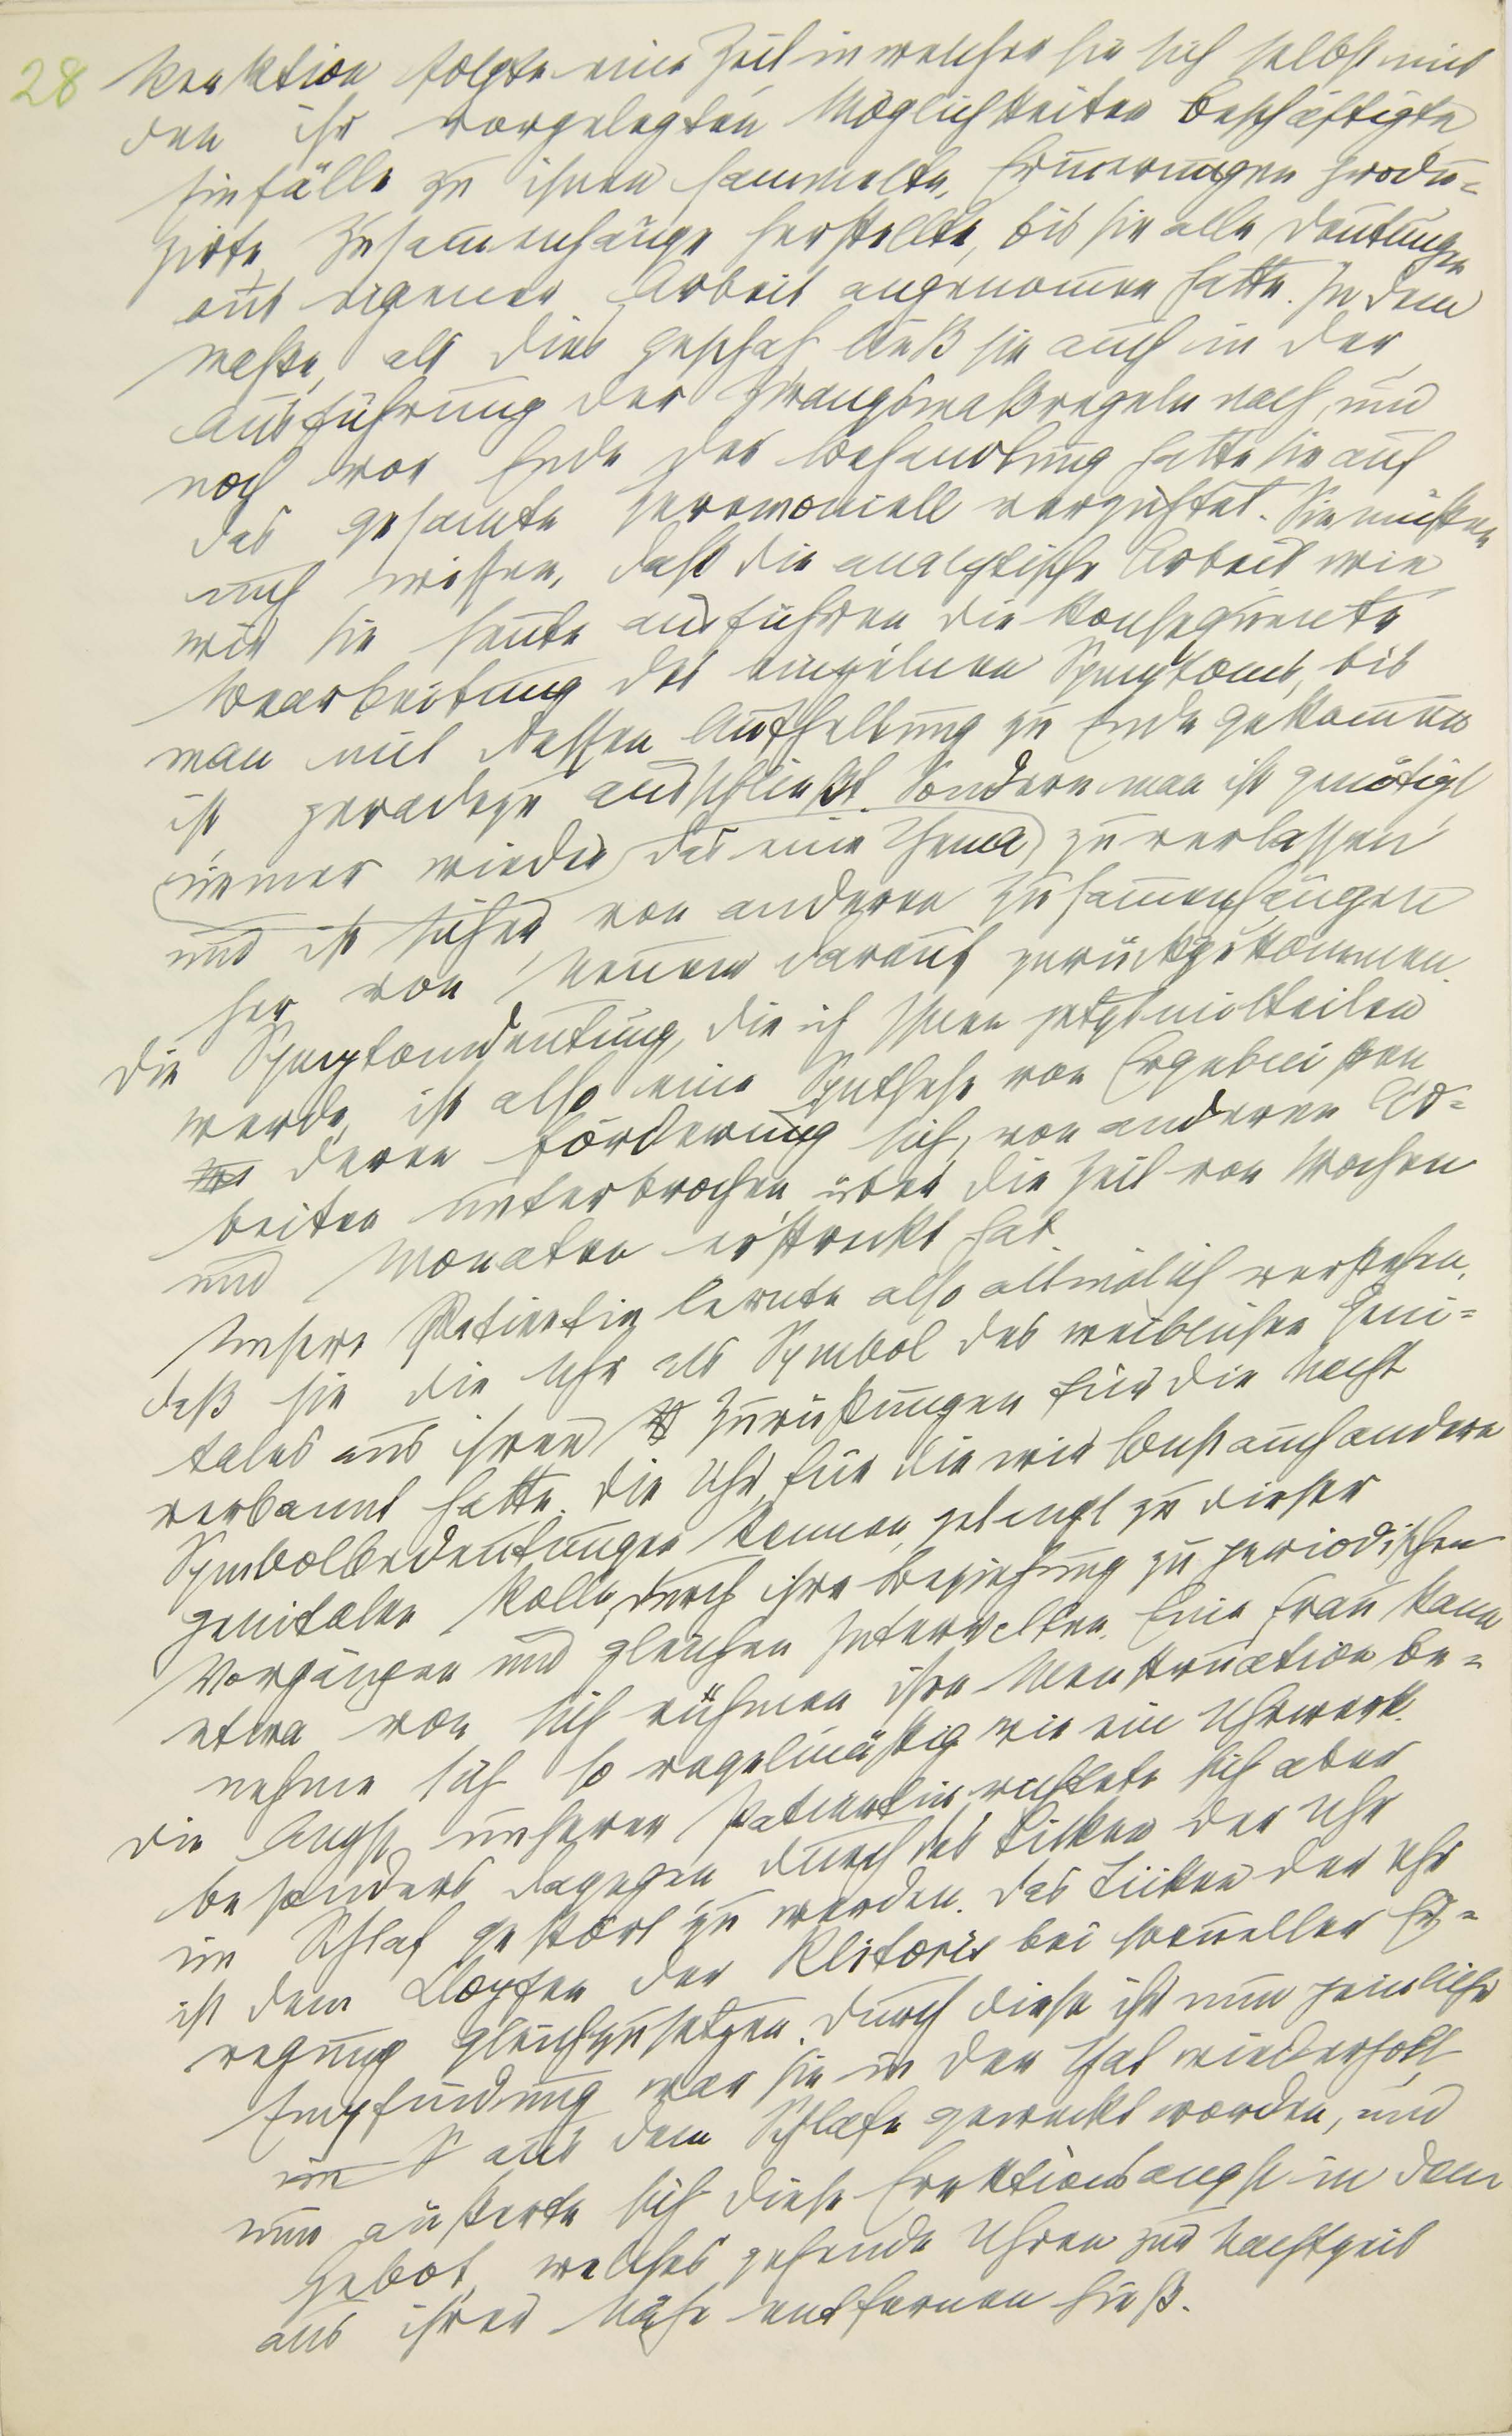 28
Reaktion folgte eine Zeit in welcher sie sich selbst mit
den ihr vorgelegten Möglichkeiten beschäftigte,
Einfälle zu ihnen sammelte, Erinnerungen produ-
zirte, Zusammenhänge herstellte, bis sie alle Deutungen
aus eigener Arbeit angenommen hatte. In dem
Maße, als dies geschah, ließ sie auch in der
Ausführung der Zwangsmaßregeln nach, und
noch vor Ende der Behandlung hatte sie auf
das gesamte Zeremoniell verzichtet. Sie müssen
auch wissen, daß die analytische Arbeit wie
wir sie heute ausführen die konsequente
Bearbeitung des einzelnen Symptoms, bis
man mit dessen Aufhellung zu Ende gekommen
ist, geradezu ausschließt. Sondern man ist genötigt
immer wieder das eine Thema zu verlassen
und ist sicher, von anderen Zusammenhängen
her von Neuem darauf zurückzukommen.
Die Symptomdeutung, die ich Ihnen jetzt mitteilen
werde, ist also eine Synthese von Ergebnissen
deren Förderung sich, von anderen Ar-
beiten unterbrochen über die Zeit von Wochen
und Monaten erstreckt hat.
Unsere Patientin lernte also allmälich verstehen,
daß sie die Uhr als Symbol des weiblichen Geni-
tales aus ihren Zurüstungen für die Nacht
verbannt hatte. Die Uhr, für die wir sonst auch andere
Symbolbedeutungen kennen, gelangt zu dieser
genitalen Rolle durch ihre Beziehung zu periodischen
Vorgängen und gleichen Intervallen. Eine Frau kann
etwa von sich rühmen ihre Menstruation be-
nehme sich so regelmäßig wie ein Uhrwerk.
Die Angst unserer Patientin richtete sich aber
besonders dagegen durch das Ticken der Uhr
im Schlaf gestört zu werden. Das Ticken der Uhr
ist dem Klopfen der Klitoris bei sexueller Er-
regung gleichzusetzen. Durch diese ihr nun peinliche
Empfindung war sie in der That wiederholt
im S aus dem Schlafe geweckt worden, und
nun äußerte sich diese Erektionsangst in dem
Gebot, welches gehende Uhren zur Nachtzeit
aus ihrer Nähe entfernen hieß.